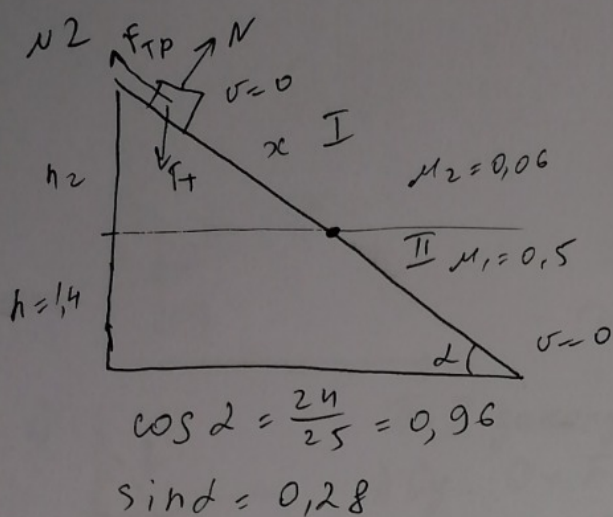 №2 Fтр N
v=0
x I
h₂ Fт μ₂ = 0,06
II μ₁ = 0,5
h = 1,4
α v=0
cos α = 24/25 = 0,96
sin α = 0,28